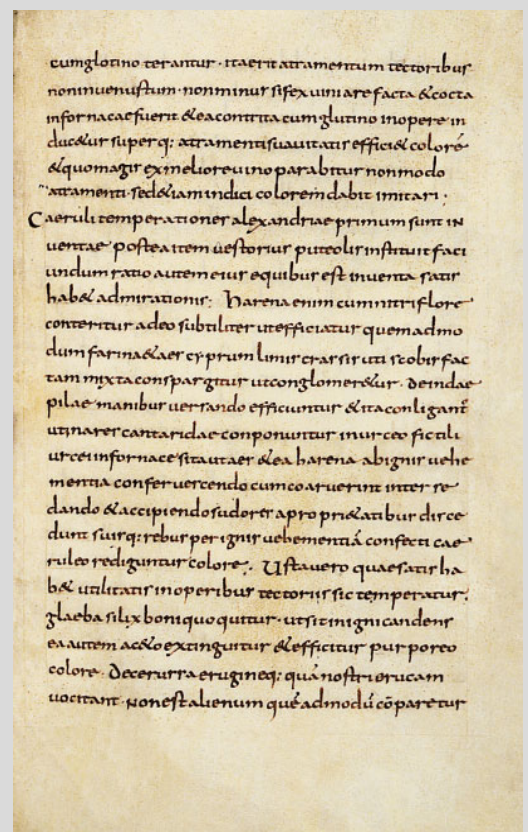 cumglotino terantur · itaerit atramentum tectoribus
noninvenustum · nonminus sifex uini arefacta & cocta
infornacaefuerit & eacontrita cumglutino inopere in
duc&ur superq: atramentisuauitatis effici& colorē
& quomagis ex meliore uino parabitur nonmodo
atramenti · sed & iam indici colorem dabit imitari :
Caeruli temperationes alexandriae primum sunt in
uentae postea item uestorius puteolis instituit faci
undum ratio autem eius equibus est inuenta satis
hab& admirationis : harena enim cumnitri flore
conteritur adeo subtiliter utefficiatur quemadmo
dum farina & aes cyprum limis crassis uti scobis fac
tam mixta conspargitur utconglomer&ur · deindae
pilae manibus uersando efficiuntur & ita conligant̄
utinarescant aridae conponuntur inurceo fictili
urcei infornace sita ut aes & ea harena abignis uehe
mentia conferuescendo cum coaruerint inter se
dando & accipiendo sudores apropri&atibus disce
dunt suisq: rebus per ignis uehementiā confecti cae
ruleo rediguntur colore : Usta uero quae satis ha
b& utilitatis inoperibus tectoriis sic temperatur :
glaeba silix boni quo quitur · utsit inigni candens
ea autem ac&o extinguitur & efficitur purporeo
colore · decerussa erugineq: quā nostri erucam
uocitant · non est alienum quē admodū cōparetur